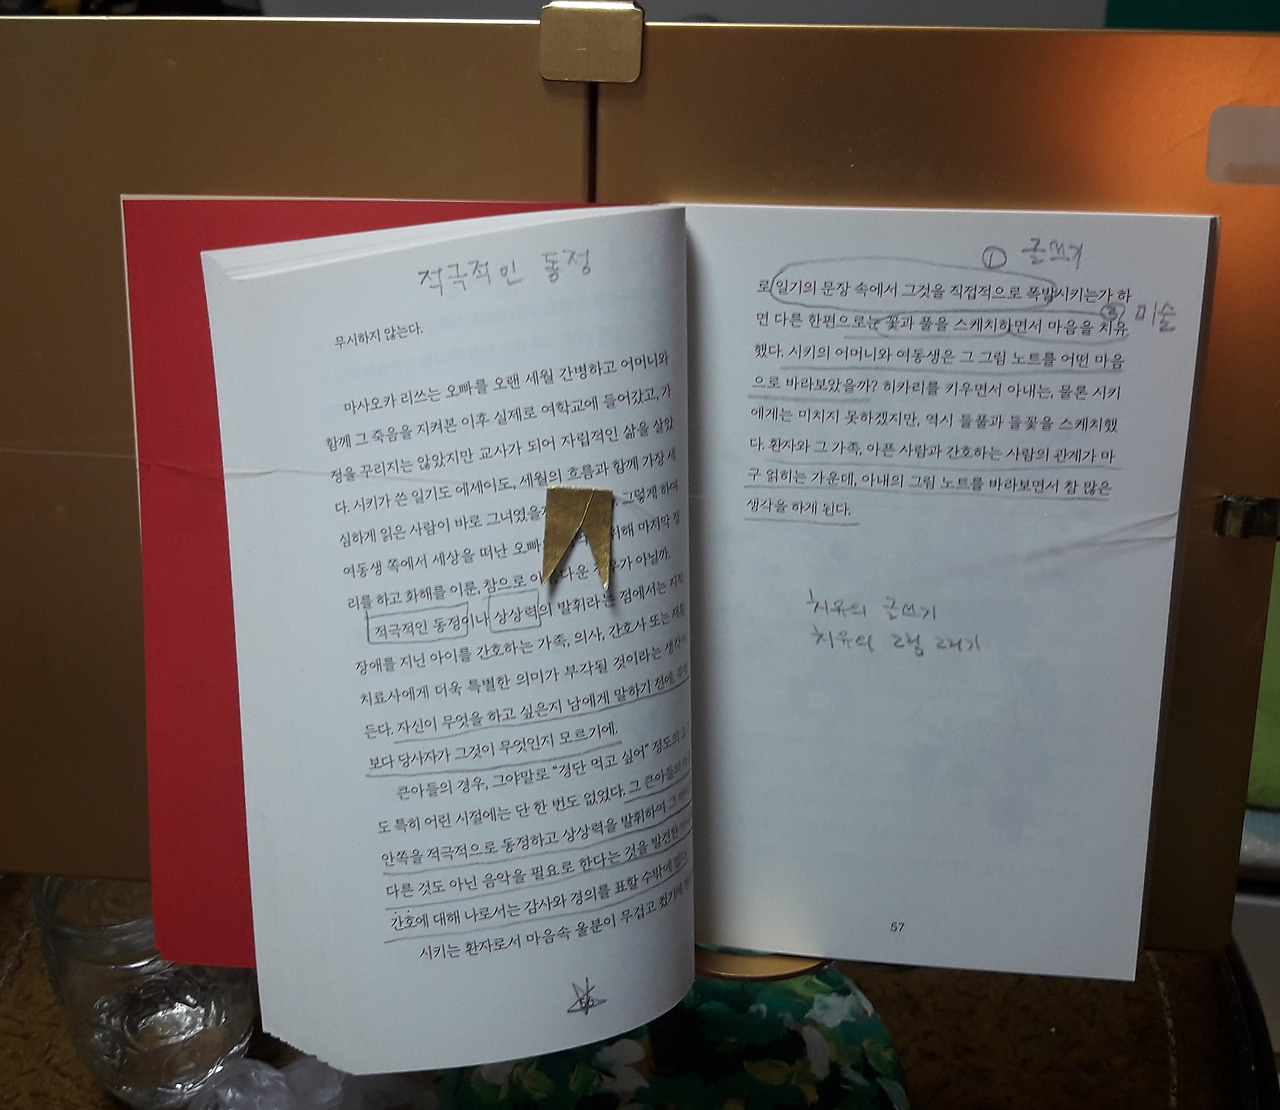 적극적인 동정
무시하지 않는다.
마사오카 리쓰는 오빠를 오랜 세월 간병하고 어머니와
함께 그 죽음을 지켜본 이후 실제로 여학교에 들어갔고, 가
정을 꾸리지는 않았지만 교사가 되어 자립적인 삶을 살았
다. 시키가 쓴 일기도 에세이도, 세월의 흐름과 함께 가장 세
심하게 읽은 사람이 바로 그녀였을 그렇게 하여
여동생 쪽에서 세상을 떠난 오빠 위해 마지막 정
리를 하고 화해를 이룬, 참으로 아름다운 경우가 아닐까.
적극적인 동정이나 상상력의 발휘라는 점에서는 지적
장애를 지닌 아이를 간호하는 가족, 의사, 간호사 또는
치료사에게 더욱 특별한 의미가 부각될 것이라는 생각이
든다. 자신이 무엇을 하고 싶은지 남에게 말하기 전에, 무엇
보다 당사자가 그것이 무엇인지 모르기에.
큰아들의 경우, 그야말로 “경단 먹고 싶어” 정도의
도 특히 어린 시절에는 단 한 번도 없었다. 그 큰아들의
안쪽을 적극적으로 동정하고 상상력을 발휘하여 그
다른 것도 아닌 음악을 필요로 한다는 것을 발견한
간호에 대해 나로서는 감사와 경의를 표할 수밖에 없다.
시키는 환자로서 마음속 울분이 무겁고 컸기에
56
① 글쓰기
로 일기의 문장 속에서 그것을 직접적으로 폭발시키는가 하
② 미술
면 다른 한편으로는 꽃과 풀을 스케치하면서 마음을 치유
했다. 시키의 어머니와 여동생은 그 그림 노트를 어떤 마음
으로 바라보았을까? 히카리를 키우면서 아내는, 물론 시키
에게는 미치지 못하겠지만, 역시 들풀과 들꽃을 스케치했
다. 환자와 그 가족, 아픈 사람과 간호하는 사람의 관계가 마
구 얽히는 가운데, 아내의 그림 노트를 바라보면서 참 많은
생각을 하게 된다.
치유의 글쓰기
치유의 그림 그리기
57